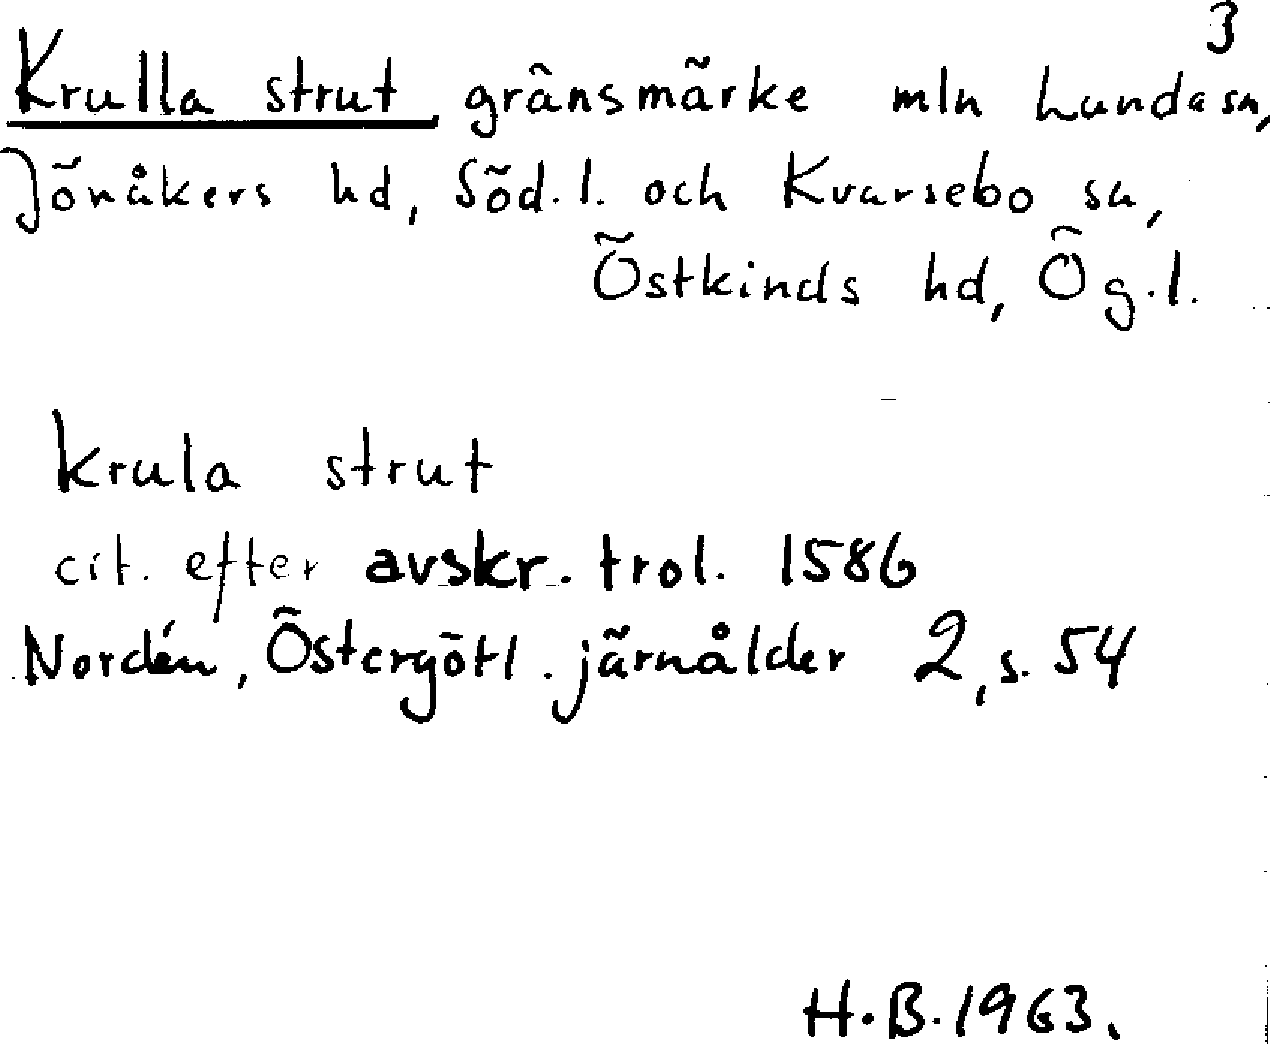 3
Krulla strut, gränsmärke mln Lunda sn,
Jönåkers hd, Söd.l. och Kvarsebo sn,
Östkinds hd, Ög.l.
Krula strut
cit. efter avskr. trol. 1586
Nordén, Östergötl. järnålder 2, s. 54
H.B. 1963.